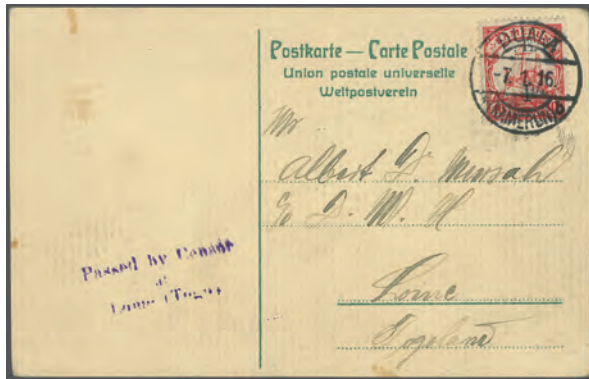 Postkarte — Carte Postale
Union postale universelle
Weltpostverein
DUALA
-7. 1. 16.
KAMERUN
Mr
Albert D. Mensah
c/o D. W. H
Lome
Togoland
Passed by Censor
at
Lome (Togo)